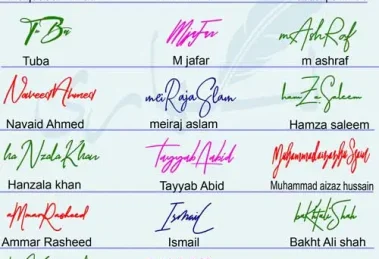 Tuba
M jafar
mAshRaf
Tuba M jafar m ashraf
NaveedAhmed meiRajaSlam hamZaSaleem
Navaid Ahmed meiraj aslam Hamza saleem
haNzalaKhan TayyabAabid
Hanzala khan Tayyab Abid Muhammad aizaz hussain
aMmarRasheed IsmaiL baKhtaliShah
Ammar Rasheed Ismail Bakht Ali shah